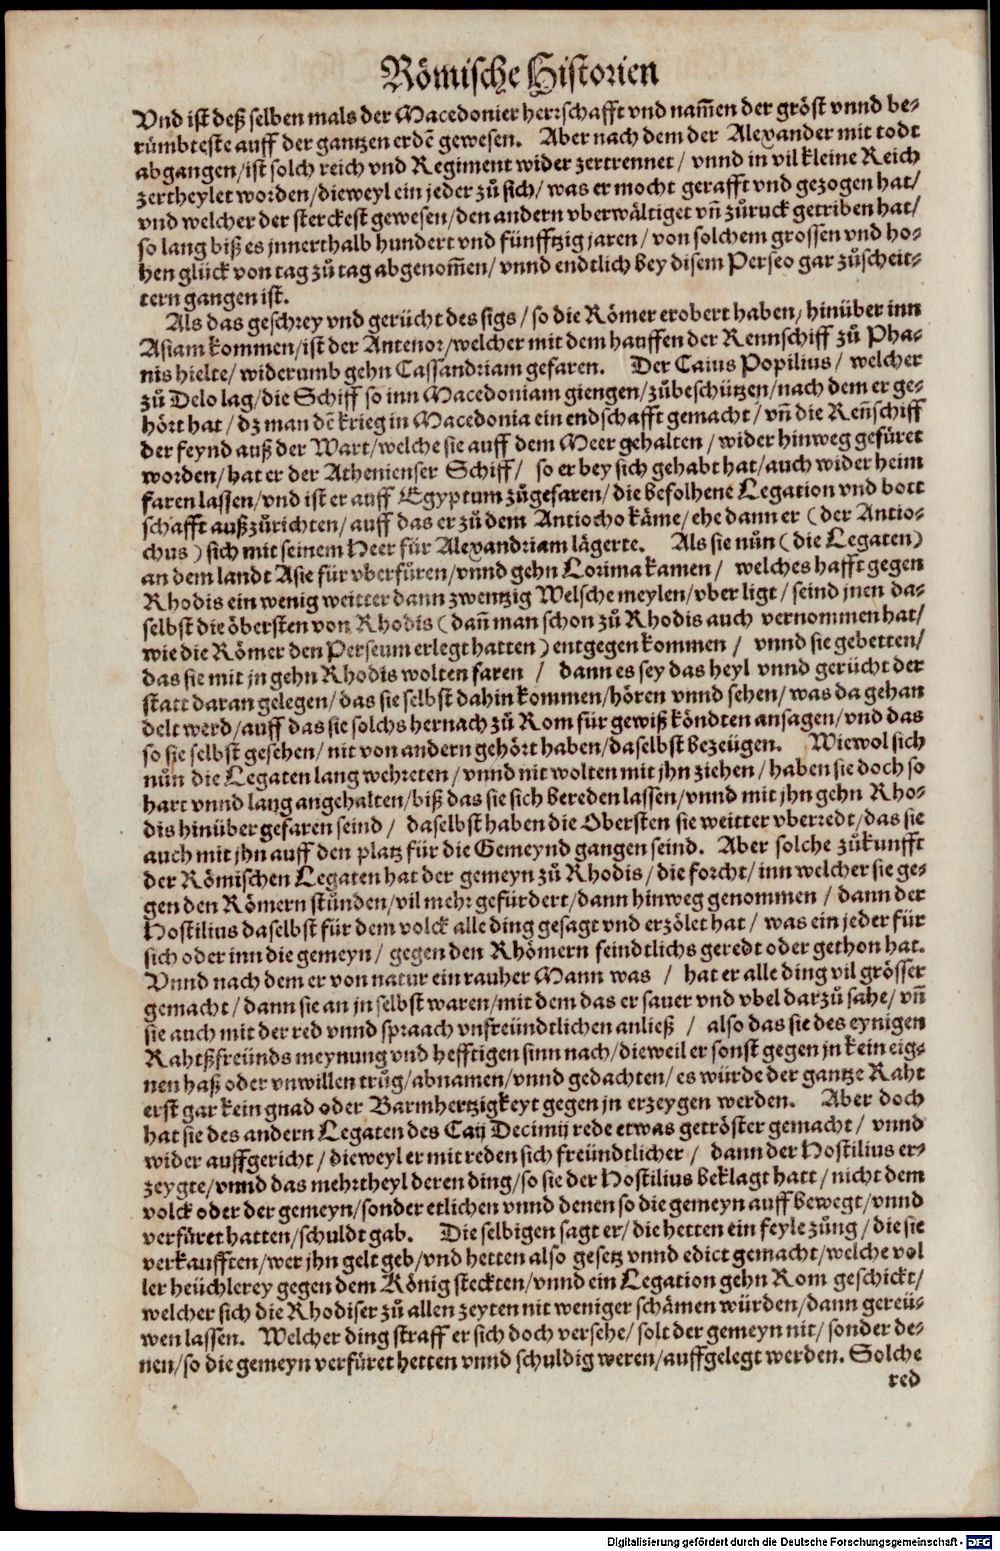 Römische Historien
Vnd ist deß selben mals der Macedonier herrschafft vnd nam̃en der gröst vnnd be-
rümbteste auff der gantzen erdẽ gewesen. Aber nach dem der Alexander mit todt
abgangen/ist solch reich vnd Regiment wider zertrennet/ vnnd in vil kleine Reich
zertheylet worden/dieweyl ein jeder zů sich/ was er mocht gerafft vnd gezogen hat/
vnd welcher der sterckest gewesen/den andern vberwältiget vñ zůruck getriben hat/
so lang biß es jnnerthalb hundert vnd fünfftzig jaren/ von solchem grossen vnd ho-
hen glück von tag zů tag abgenom̃en/ vnnd endtlich bey disem Perseo gar zůscheit-
tern gangen ist.
Als das geschrey vnd gerücht des sigs/ so die Römer erobert haben/ hinüber inn
Asiam kommen/ist der Antenor/welcher mit dem hauffen der Rennschiff zů Pha-
nis hielte/ widerumb gehn Cassandriam gefaren. Der Caius Popilius/ welcher
zů Delo lag/die Schiff so inn Macedoniam giengen/zůbeschützen/nach dem er ge-
hört hat/ dz man dẽ krieg in Macedonia ein endschafft gemacht/ vñ die Reñschiff
der feynd auß der Wart/welche sie auff dem Meer gehalten/ wider hinweg gefüret
worden/hat er der Athenienser Schiff/ so er bey sich gehabt hat/auch wider heim
faren lassen/vnd ist er auff Egyptum zůgefaren/die befolhene Legation vnd bott
schafft außzůrichten/auff das er zů dem Antiocho käme/ehe dann er (der Antio-
chus) sich mit seinem Heer für Alexandriam lägerte. Als sie nůn (die Legaten)
an dem landt Asie für vberfůren/vnnd gehn Lorima kamen/ welches hafft gegen
Rhodis ein wenig weitter dann zwentzig Welsche meylen/vber ligt/ seind jnen da-
selbst die öbersten von Rhodis (dañ man schon zů Rhodis auch vernommen hat/
wie die Römer den Perseum erlegt hatten) entgegen kommen/ vnnd sie gebetten/
das sie mit jn gehn Rhodis wolten faren/ dann es sey das heyl vnnd gerücht der
statt daran gelegen/das sie selbst dahin kommen/hören vnnd sehen/was da gehan
delt werd/auff das sie solchs hernach zů Rom für gewiß köndten ansagen/vnd das
so sie selbst gesehen/nit von andern gehört haben/daselbst bezeügen. Wiewol sich
nůn die Legaten lang wehreten/vnnd nit wolten mit jhn ziehen/haben sie doch so
hart vnnd lang angehalten/biß das sie sich bereden lassen/vnnd mit jhn gehn Rho-
dis hinüber gefaren seind/ daselbst haben die Obersten sie weitter vberredt/das sie
auch mit jhn auff den platz für die Gemeynd gangen seind. Aber solche zůkunfft
der Römischen Legaten hat der gemeyn zů Rhodis/die forcht/inn welcher sie ge-
gen den Römern stůnden/vil mehr gefürdert/dann hinweg genommen/ dann der
Hostilius daselbst für dem volck alle ding gesagt vnd erzölet hat/ was ein jeder für
sich oder inn die gemeyn/ gegen den Rhömern feindtlichs geredt oder gethon hat.
Vnnd nach dem er von natur ein rauher Mann was/ hat er alle ding vil grösser
gemacht/dann sie an jn selbst waren/mit dem das er sauer vnd vbel darzů sahe/vñ
sie auch mit der red vnnd spraach vnfreündtlichen anließ/ also das sie des eynigen
Rahtßfreünds meynung vnd hefftigen sinn nach/dieweil er sonst gegen jn kein eig-
nen haß oder vnwillen trůg/abnamen/vnnd gedachten/es würde der gantze Raht
erst gar kein gnad oder Barmhertzigkeyt gegen jn erzeygen werden. Aber doch
hat sie des andern Legaten des Caij Decimij rede etwas getröster gemacht/ vnnd
wider auffgericht/dieweyl er mit reden sich freündtlicher/ dann der Hostilius er-
zeygte/vnnd das mehrtheyl deren ding/so sie der Hostilius beklagt hatt/nicht dem
volck oder der gemeyn/sonder etlichen vnnd denen so die gemeyn auffbewegt/vnnd
verfüret hatten/schuldt gab. Die selbigen sagt er/die hetten ein feyle zůng/die sie
verkaufften/wer jhn gelt geb/vnd hetten also gesetz vnnd edict gemacht/welche vol
ler heüchlerey gegen dem König steckten/vnnd ein Legation gehn Rom geschickt/
welcher sich die Rhodiser zů allen zeyten nit weniger schämen würden/dann gereü-
wen lassen. Welcher ding straff er sich doch versehe/solt der gemeyn nit/sonder de-
nen/so die gemeyn verfüret hetten vnnd schuldig weren/auffgelegt werden. Solche
red
Digitalisierung gefördert durch die Deutsche Forschungsgemeinschaft - DFG